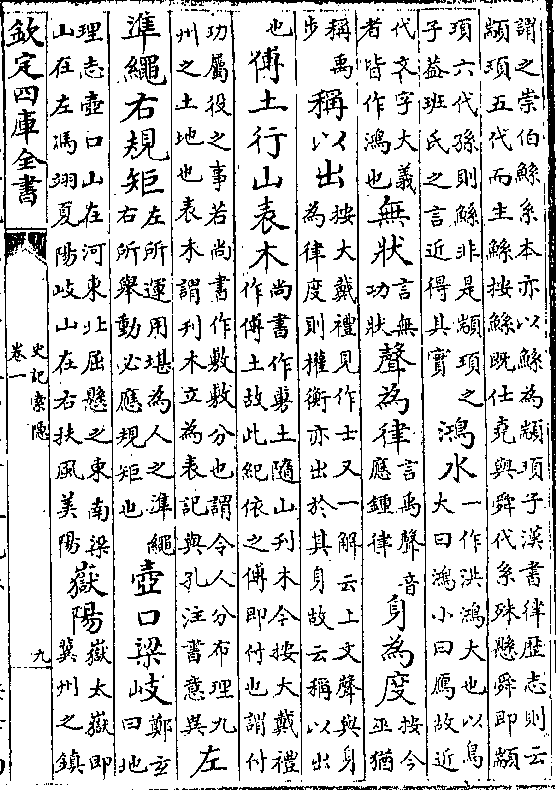 謂之崇伯鯀系本亦以鯀為顓頊子漢書律歴志則云
顓頊五代而生鯀按鯀既仕堯與舜代系殊懸舜即顓
頊六代孫則鯀非是顓頊之
子葢班氏之言近得其實
鴻水
一作洪鴻大也以鳥
大曰鴻小曰鴈故近
代文字大義
者皆作鴻也
無狀
言無
功狀
聲為律
言禹聲音
應鍾律
身為度
按今
巫猶
稱禹
步
稱以出
按大戴禮見作士又一解云上文聲與身
為律度則權衡亦出於其身故云稱以出
也
傅土行山表木
尚書作敷土隨山刋木今按大戴禮
作傅土故此紀依之傅即付也謂付
功屬役之事若尚書作敷敷分也謂令人分布理九
州之土地也表木謂刋木立為表記與孔注書意異
左
準繩右規矩
左所運用堪為人之準繩
右所舉動必應規矩也
壺口梁岐
鄭玄
曰地
理志壺口山在河東北屈懸之東南梁
山在左馮翊夏陽岐山在右扶風美陽
嶽陽
嶽太嶽即
冀州之鎮
欽定四庫全書
史記索隱
卷一
九